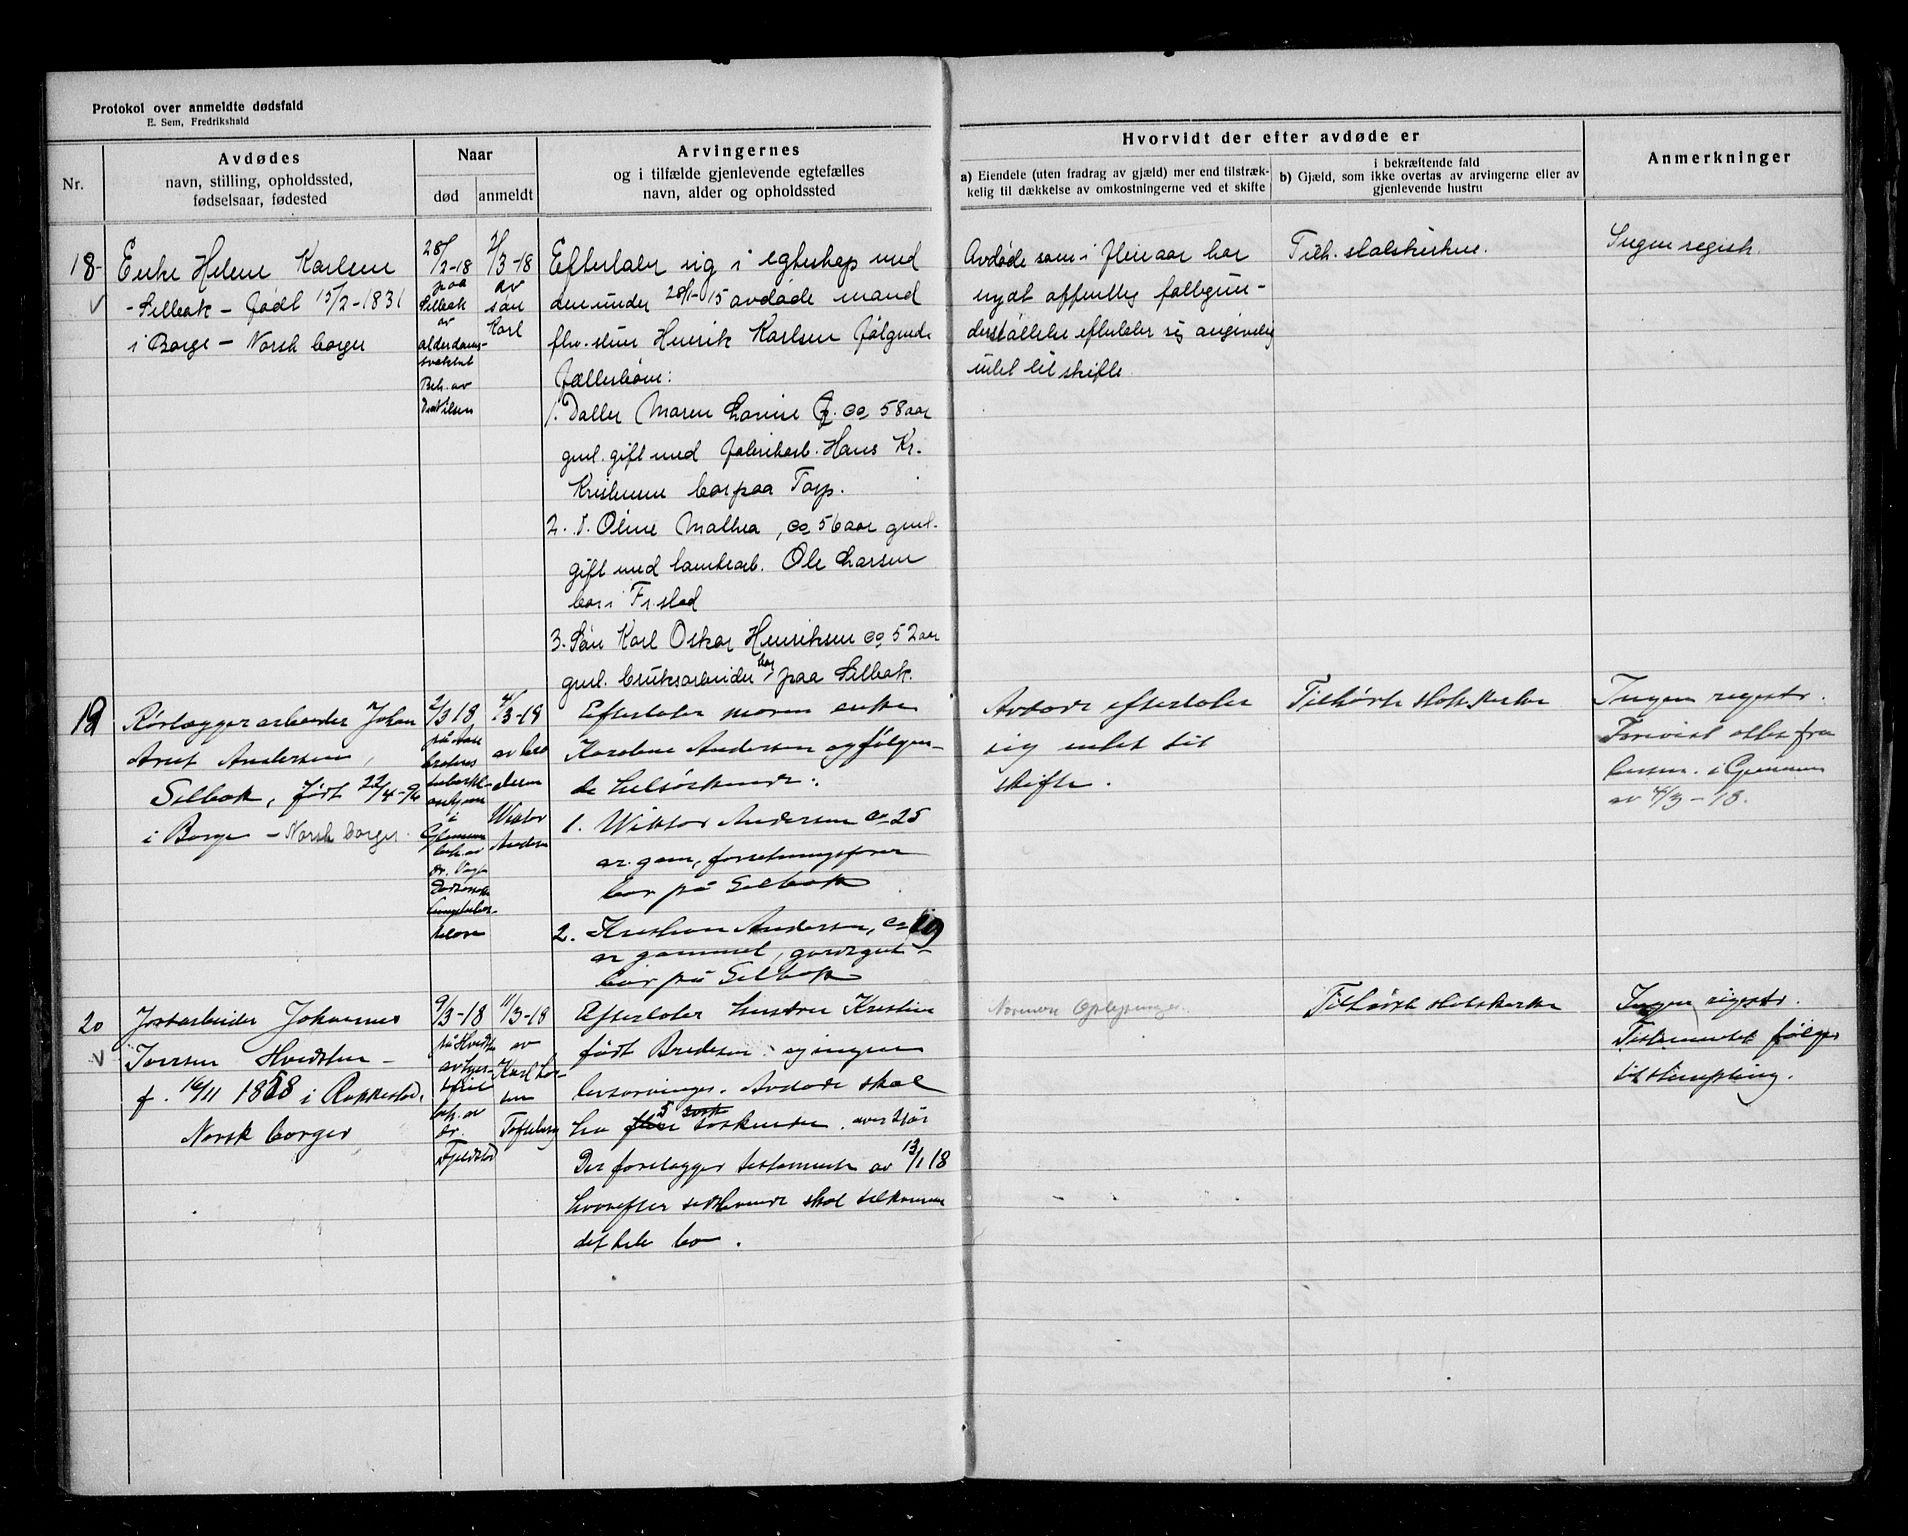 Protokol over anmeldte dødsfald
E. Sem, Fredrikshald
Nr.
Avdødes
navn, stilling, opholdssted,
fødselsaar, fødested
Naar
død
anmeldt
Arvingernes
og i tilfælde gjenlevende egtefælles
navn, alder og opholdssted
Hvorvidt der efter avdøde er
a) Eiendele (uten fradrag av gjæld) mer end tilstræk-
kelig til dækkelse av omkostningerne ved et skifte
i bekræftende fald
b) Gjæld, som ikke overtas av arvingerne eller av
gjenlevende hustru
Anmerkninger
18
Enke Helene Karlsen
- Selbak - født 15/2-1831
i Borge - Norsk borger
28/2-18
paa
Selbak
av
alderdoms-
svakhet
Beh. av
2/3-18
av
søn
Karl
Efterlater sig i egteskap med
den under 28/1-15 avdøde mand
fhv. stuer Henrik Karlsen følgende
fællesbørn:
1. Datter Maren Lovise ca 58 aar
gml. gift med fabrikarb. Hans Kr.
Kristensen bor paa Torp.
2. D. Oline Mathea, ca 56 aar gml.
gift med tomtearb. Ole Larsen
bor i Fr.stad
3. Søn Karl Oskar Henriksen ca 52 aar
gml. bruksarbeider bor paa Selbak.
Avdøde som i flere aar har
nydt offentlig fattigun-
derstøttelse efterlater sig angivelig
intet til skifte
Tilh. statskirken.
Ingen registr.
19
Rørlæggerarbeider Johan
Arnt Andersen,
Selbak, født 22/4-94
i Borge - Norsk borger.
2/3 18
i
Glemmen
beh. av
dr.
4/3-18
av bro
deren
Wiktor
Andersen
Efterlater moren enke
Karoline Andersen og følgen-
de helsøskende:
1. Wiktor Andersen ca 25
ar gam, forretningsfører
bor på Selbak
2. Kristian Andersen, ca 19
ar gammel, gardsgut
bor på Selbak
Avdøde efterlater
sig intet til
skifte.
Tilhørte statskirken
Ingen registr.
Forevist attest fra
lensm. i Glemmen
av 4/3-18.
20
Jordarbeider Johannes
Iversen Hvidsten -
f. 16/11 1858 i Rakkestad,
Norsk borger
9/3-18
på Hvidsten
av hjer-
tefeil
beh. av
dr.
Fjeldstad
11/3-18
av
Karl Lar-
sen
Tofteberg
Efterlater hustru Kristine
født Bredesen og ingen
livsarvinger. Avdøde skal
ha 5 søskende
Der foreligger testamente av 13/1 18
hvorefter gjenlevende skal tilkomme
det hele bo.
Nærmere oplysninger.
Tilhørte statskirken
Ingen registr.
Testamentet følger
til stempling.